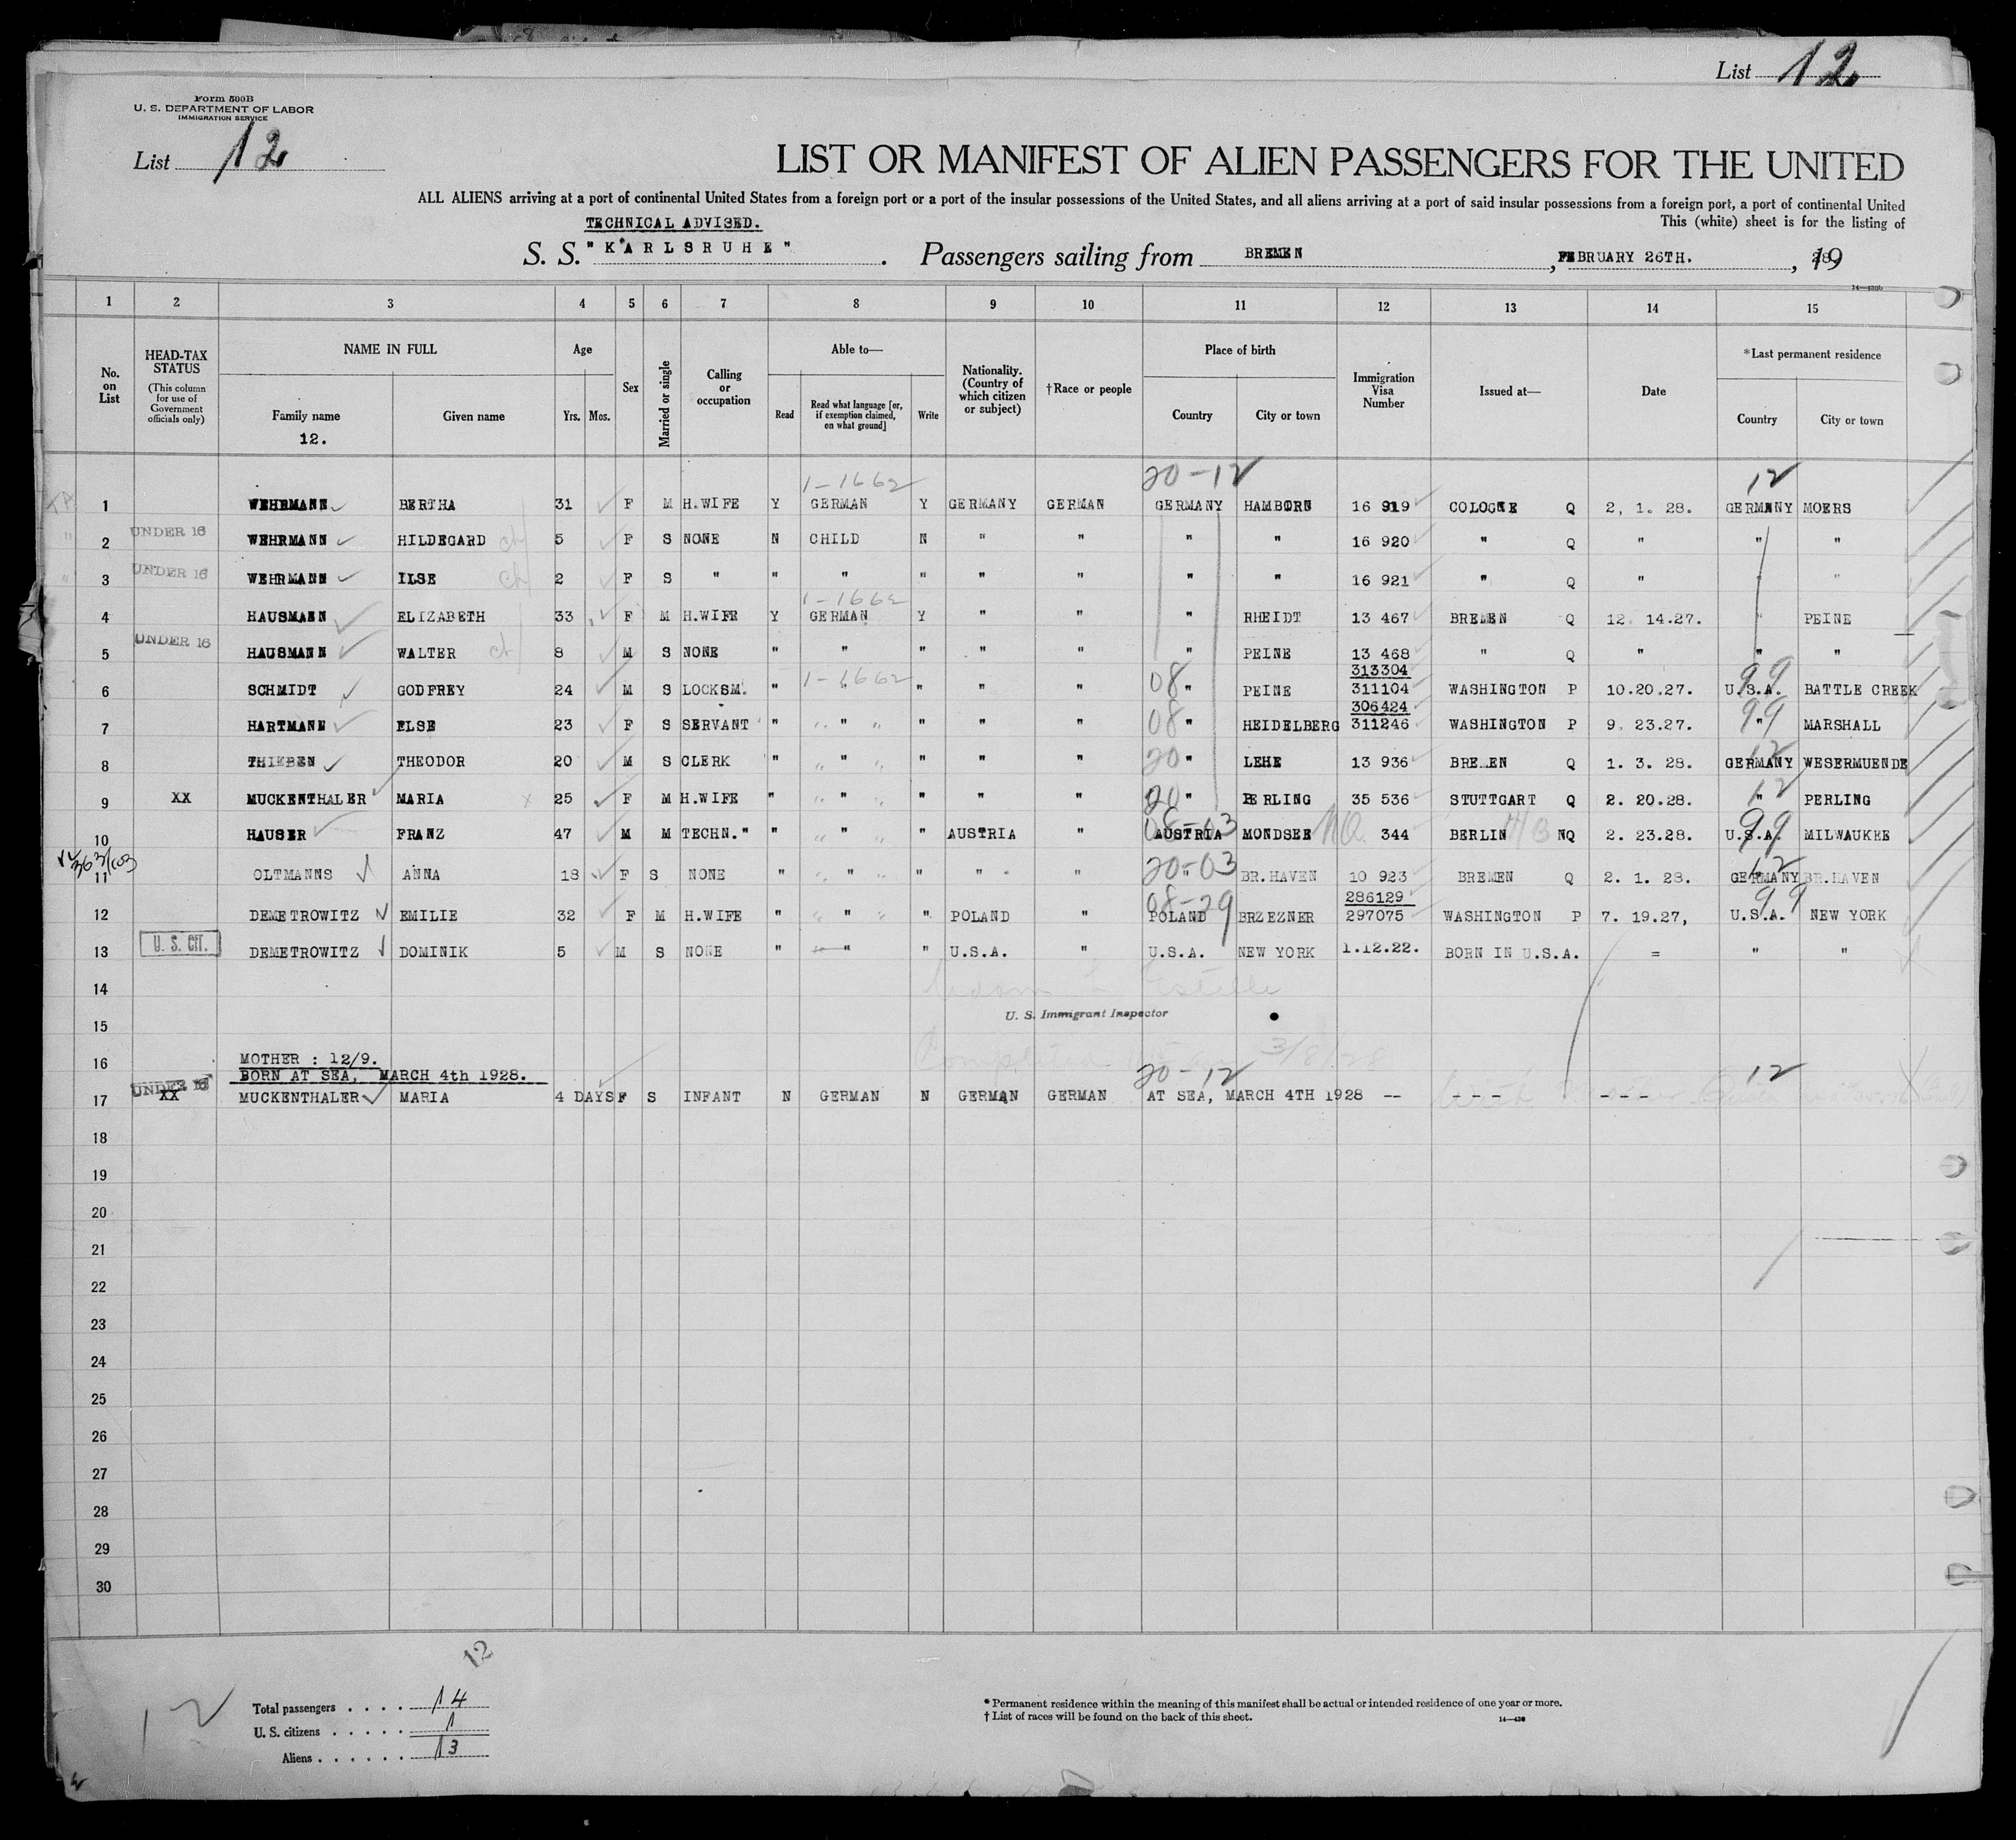 List 12
Form 500B
U. S. DEPARTMENT OF LABOR
IMMIGRATION SERVICE
List 12
LIST OR MANIFEST OF ALIEN PASSENGERS FOR THE UNITED
ALL ALIENS arriving at a port of continental United States from a foreign port or a port of the insular possessions of the United States, and all aliens arriving at a port of said insular possessions from a foreign port, a port of continental United
TECHNICAL ADVISED. This (white) sheet is for the listing of
S. S. "KARLSRUHE". Passengers sailing from BREMEN, FEBRUARY 26TH., 1928.
1 2 3 4 5 6 7 8 9 10 11 12 13 14 15
No. on List
HEAD-TAX STATUS (This column for use of Government officials only)
NAME IN FULL
Family name
12.
Given name
Age
Yrs. Mos.
Sex
Married or single
Calling or occupation
Able to—
Read
Read what language [or, if exemption claimed, on what ground]
Write
Nationality. (Country of which citizen or subject)
†Race or people
Place of birth
Country
City or town
Immigration Visa Number
Issued at—
Date
*Last permanent residence
Country
City or town
1-1662 20-12 12
1 WEHRMANN BERTHA 31 F M H.WIFE Y GERMAN Y GERMANY GERMAN GERMANY HAMBORN 16 919 COLOGNE Q 2, 1. 28. GERMANY MOERS
2 UNDER 16 WEHRMANN HILDEGARD ch 5 F S NONE N CHILD N " " " " 16 920 " Q " " "
3 UNDER 16 WEHRMANN ILSE ch 2 F S " " " " " " " " 16 921 " Q " " "
1-1662
4 HAUSMANN ELIZABETH 33 F M H.WIFE Y GERMAN Y " " " RHEIDT 13 467 BREMEN Q 12. 14.27. " PEINE
5 UNDER 16 HAUSMANN WALTER ch 8 M S NONE " " " " " " PEINE 13 468 " Q " " "
313304
6 SCHMIDT GODFREY 24 M S LOCKSM. " 1-1662 " " " " 08 " PEINE 311104 WASHINGTON P 10.20.27. U.S.A. 99 BATTLE CREEK
306424
7 HARTMANN ELSE 23 F S SERVANT " " " " " 08 " HEIDELBERG 311246 WASHINGTON P 9. 23.27. " 99 MARSHALL
8 THIEBEN THEODOR 20 M S CLERK " " " " " 20 " LEHE 13 936 BREMEN Q 1. 3. 28. 12 GERMANY WESERMUENDE
9 XX MUCKENTHALER MARIA x 25 F M H.WIFE " " " " " 20 " BERLING 35 536 STUTTGART Q 2. 20.28. 12 " PERLING
10 HAUSER FRANZ 47 M M TECHN." " " " AUSTRIA " 08-03 AUSTRIA MONDSEE NQ 344 BERLIN NQ 2. 23.28. U.S.A. 99 MILWAUKEE
11 OLTMANNS ANNA 18 F S NONE " " " " " 20-03 " BR.HAVEN 10 923 BREMEN Q 2. 1. 28. 12 GERMANY BR.HAVEN
286129
12 DEMETROWITZ EMILIE 32 F M H.WIFE " " " POLAND " 08-29 POLAND BRZEZNER 297075 WASHINGTON P 7. 19.27, U.S.A. 99 NEW YORK
13 U. S. CIT. DEMETROWITZ DOMINIK 5 M S NONE " " " U.S.A. " U.S.A. NEW YORK 1.12.22. BORN IN U.S.A. = " "
14
U. S. Immigrant Inspector
15
3/8/28
16 MOTHER : 12/9.
BORN AT SEA, MARCH 4th 1928.
20-12 12
17 UNDER 16 XX MUCKENTHALER MARIA 4 DAYS F S INFANT N GERMAN N GERMAN GERMAN AT SEA, MARCH 4TH 1928 -- --- ---
18
19
20
21
22
23
24
25
26
27
28
29
30
12
12
Total passengers . . . . 14
U. S. citizens . . . . . 1
Aliens . . . . . . 13
* Permanent residence within the meaning of this manifest shall be actual or intended residence of one year or more.
† List of races will be found on the back of this sheet.